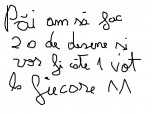 Păi am să fac
20 de desene si
vor fi cate 1 vot
la fiecare 11